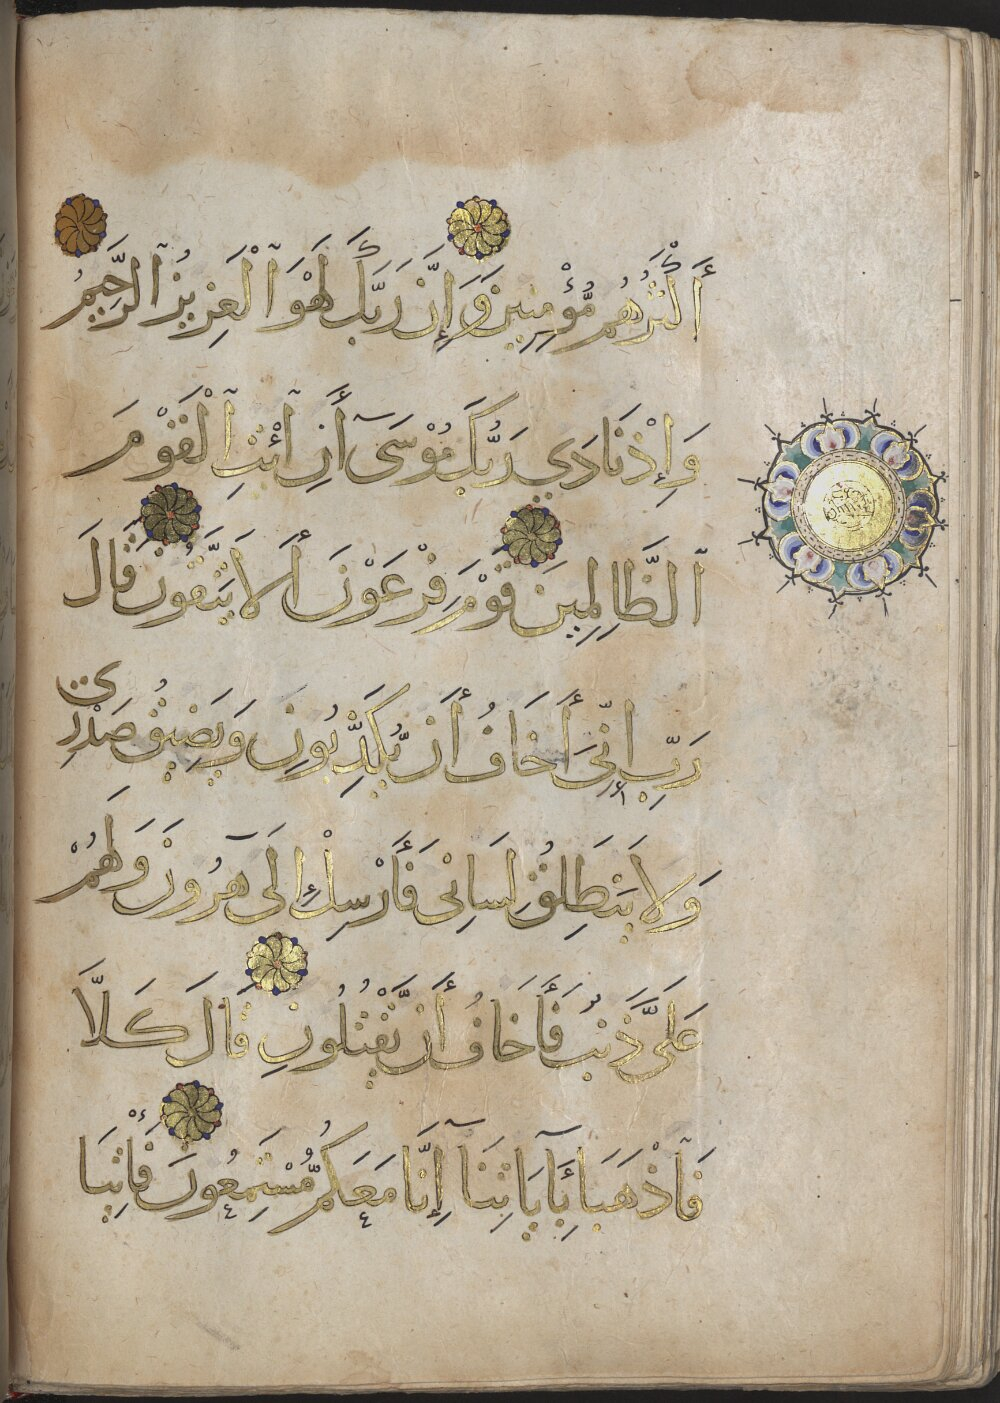 أَكْثَرُهُم مُّؤْمِنِينَ وَإِنَّ رَبَّكَ لَهُوَ ٱلْعَزِيزُ ٱلرَّحِيمُ
وَإِذْ نَادَي رَبُّكَ مُوْسَىٓ أَنِ ٱئْتِ ٱلْقَوْمَ
ٱلظَّالِمِينَ قَوْمَ فِرْعَوْنَ أَلَا يَتَّقُونَ قَالَ
رَبِّ إِنِّىَ أَخَافُ أَن يُّكَذِّبُونِ وَيَضِيقُ صَدْرِي
وَلَا يَنطَلِقُ لِسَانِى فَأَرْسِلْ إِلَىٓ هَرُونَ وَلَهُمْ
عَلَىَّ ذَنبٌ فَأَخَافُ أَن يَّقْتُلُونِ قَالَ كَلَّا
فَٱذْهَبَا بِـَٔايَاتِنَآ إِنَّا مَعَكُم مُّسْتَمِعُونَ فَأْتِيَا